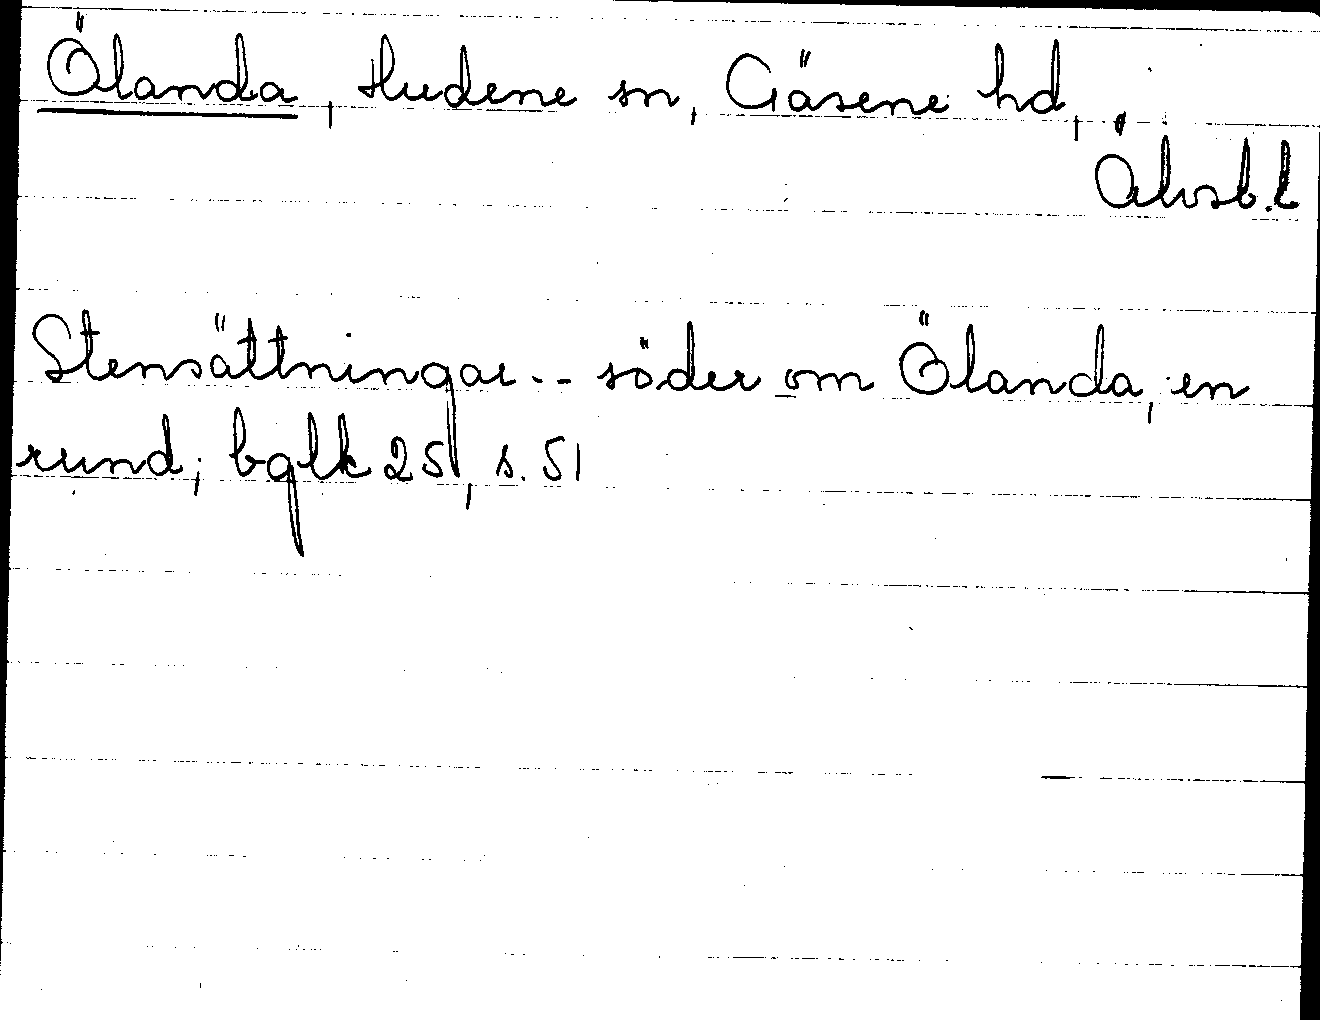 Ölanda, Hudene sn, Gäsene hd,
Älvsb.l
Stensättningar.-- söder om Ölanda, en
rund; bglk 25, s. 51